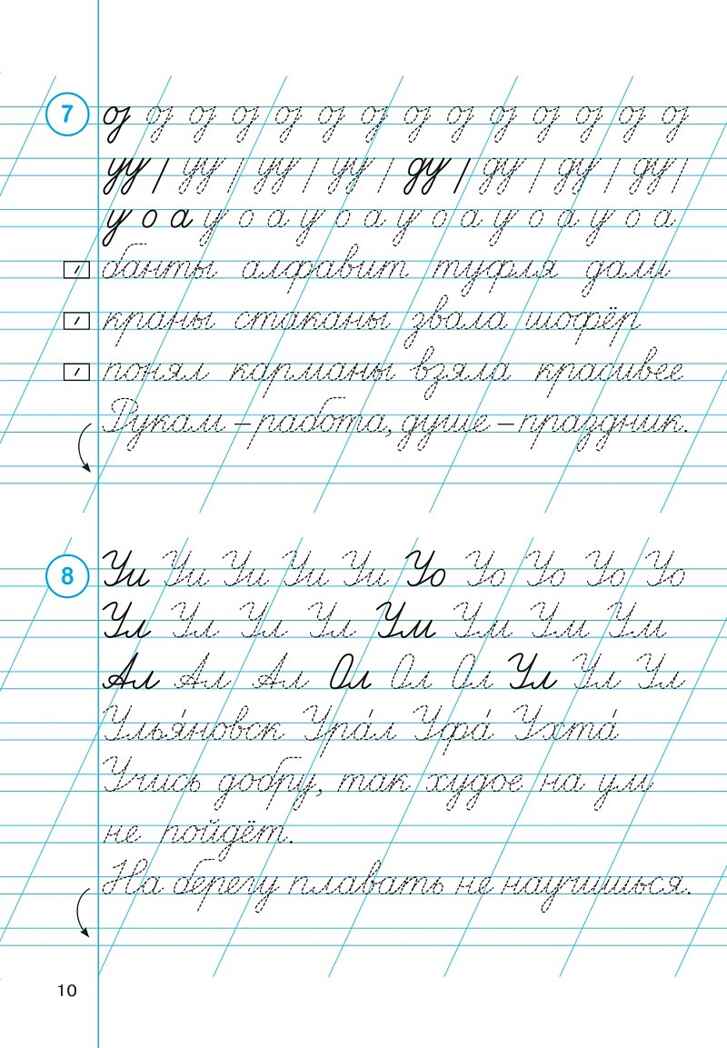 7
оу оу оу оу оу оу оу оу оу оу оу оу оу оу
уу / уу / уу / уу / ду / ду / ду / ду /
у о а у о а у о а у о а у о а у о а
банты алфавит туфля дали
краны стаканы звала шофёр
понял карманы взяла красивее
Рукам – работа, душе – праздник.
8
Уи Уи Уи Уи Уи Уо Уо Уо Уо Уо
Ул Ул Ул Ул Ум Ум Ум Ум
Ал Ал Ал Ол Ол Ол Ул Ул Ул
Улья́новск Ура́л Уфа́ Ухта́
Учись добру, так худое на ум
не пойдёт.
На берегу плавать не научишься.
10